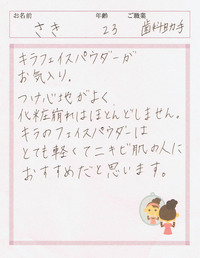 お名前 年齢 ご職業
さき 23 歯科助手
キラフェイスパウダーが
お気入り。
つけ心地がよく、
化粧崩れはほとんどしません。
キラのフェイスパウダーは
とても軽くてニキビ肌の人に
おすすめだと思います。